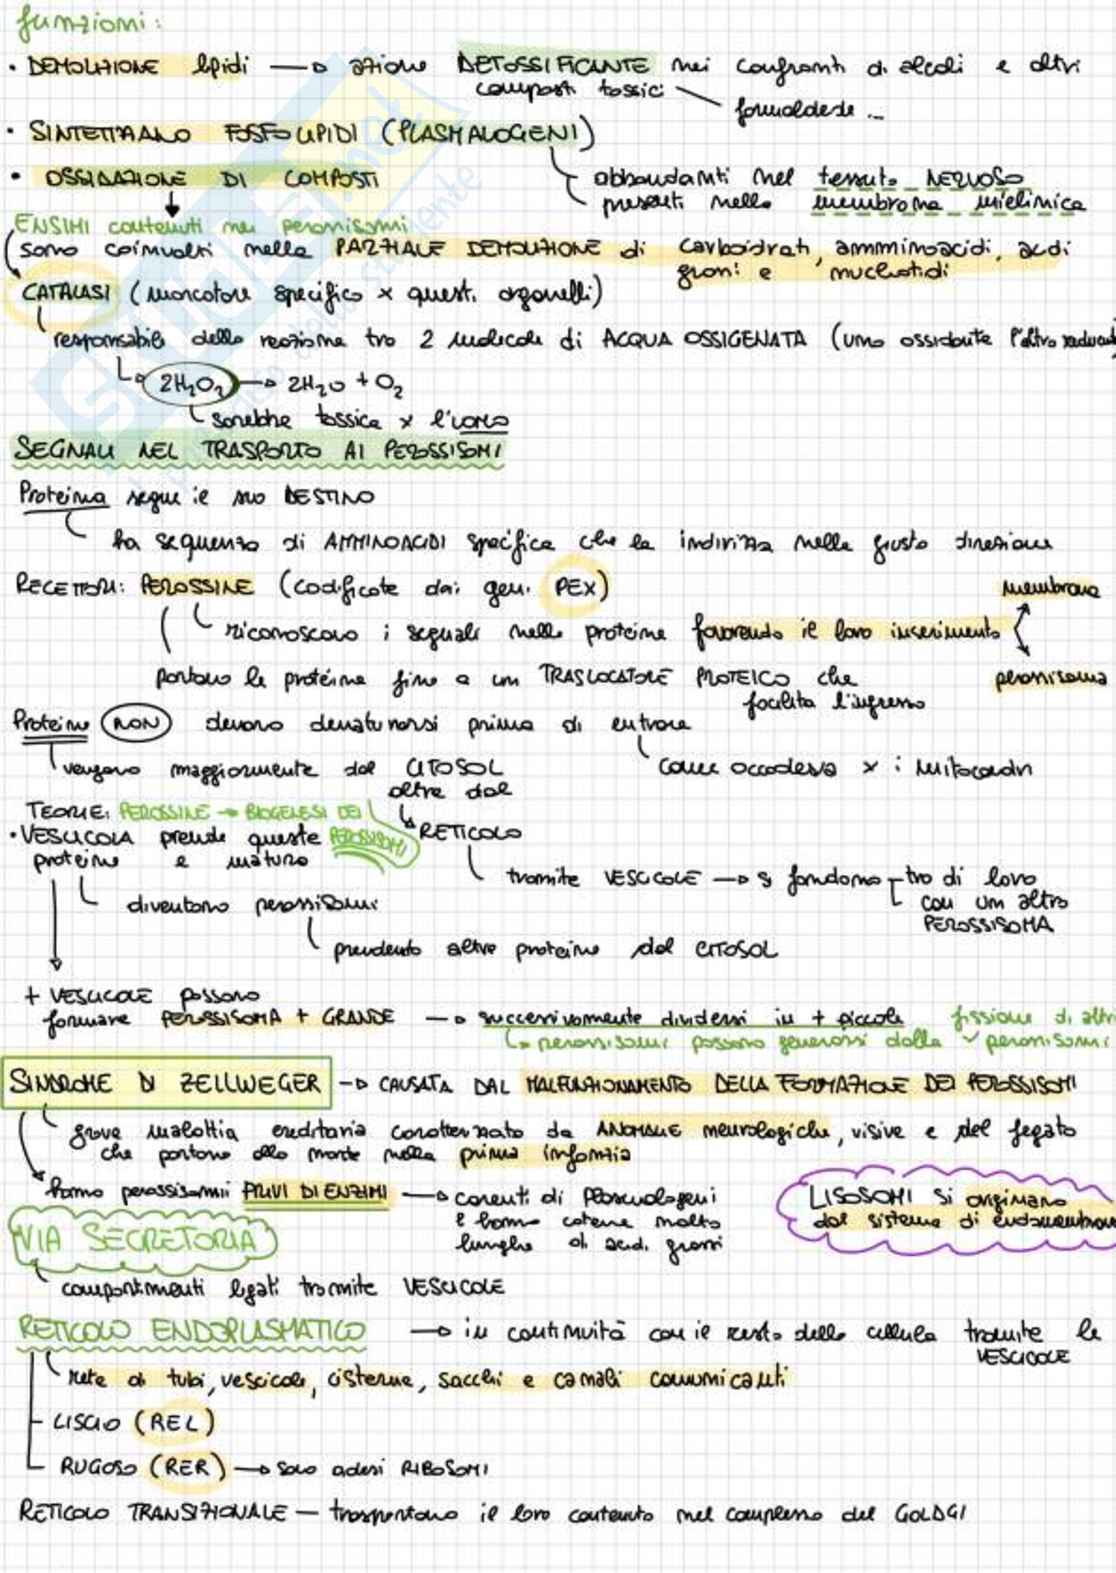 funzioni:
• DEMOLIZIONE lipidi → azione DETOSSIFICANTE nei confronti di alcoli e altri
composti tossici
formaldeide ...
• SINTETIZZANO FOSFOLIPIDI (PLASMALOGENI)
• OSSIDAZIONE DI COMPOSTI
abbondanti nel tessuto NERVOSO
presenti nella membrana mielinica
ENZIMI contenuti nei perossisomi
sono coinvolti nella PARZIALE DEMOLIZIONE di carboidrati, amminoacidi, acidi
grassi e nucleotidi
CATALASI (marcatore specifico x questi organelli)
responsabile della reazione tra 2 molecole di ACQUA OSSIGENATA (una ossidante l'altra
2H₂O₂ → 2H₂O + O₂
sarebbe tossica x l'uomo
SEGNALI NEL TRASPORTO AI PEROSSISOMI
Proteina segue il suo DESTINO
ha sequenza di AMMINOACIDI specifica che la indirizza nella giusta direzione
RECETTORI: PEROSSINE (codificate dai geni PEX)
membrana
riconoscono i segnali nelle proteine favorendo il loro inserimento
perossisoma
portano le proteine fino a un TRASLOCATORE PROTEICO che
facilita l'ingresso
Proteine NON devono denaturarsi prima di entrare
come accadeva x i mitocondri
vengono maggiormente dal CITOSOL
oltre dal
RETICOLO
TEORIE: PEROSSINE → BIOGENESI DEI
PEROSSISOMI
• VESCICOLA prende queste
proteine e matura
tramite VESCICOLE → si fondono tra di loro
con un altro
PEROSSISOMA
diventano perossisomi
prendendo altre proteine dal CITOSOL
+ VESCICOLE possono
formare PEROSSISOMA + GRANDE → successivamente dividersi in + piccole
perossisomi possono generarsi dalla fissione di altri
perossisomi
SINDROME DI ZELLWEGER → CAUSATA DAL MALFUNZIONAMENTO DELLA FORMAZIONE DEI PEROSSISOMI
grave malattia ereditaria caratterizzata da ANOMALIE neurologiche, visive e del fegato
che portano alla morte nella prima infanzia
hanno perossisomi PRIVI DI ENZIMI → carenti di Plasmalogeni
e hanno catene molto
lunghe di acidi grassi
LISOSOMI si originano
dal sistema di endomembrane
VIA SECRETORIA
compartimenti legati tramite VESCICOLE
RETICOLO ENDOPLASMATICO → in continuità con il resto della cellula tramite le
VESCICOLE
rete di tubi, vescicole, cisterne, sacchi e canali comunicanti
LISCIO (REL)
RUGOSO (RER) → sono adesi RIBOSOMI
RETICOLO TRANSIZIONALE — trasportano il loro contenuto nel complesso del GOLDGI